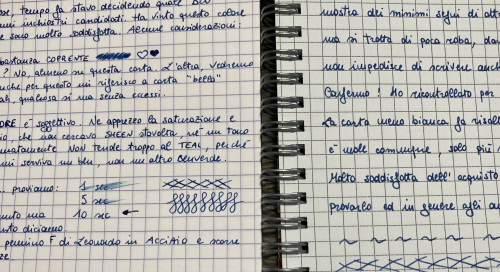 tempo fa stavo decidendo quale BLU
inchiostri candidati. Ha vinto questo colore
e sono molto soddisfatta. Alcune considerazioni:
abbastanza COPRENTE
? NO, almeno su questa carta. L'altra, vedremo
anche per questo mi riferisco a carta "bella"
qualcosa si ma senza eccessi.
è soggettivo. Ne apprezzo la saturazione e
che non cercavo SHEEN stavolta, né un tono
NON tende troppo al TEAL, perché
mi serviva un blu, non un altro bluverde.
proviamo: 1 sec
5 sec
10 sec
diciamo.
pennino F di Leonardo in Acciaio e scorre
mostra dei minimi segni di
ma si tratta di poca roba,
non impedisce di scrivere anche
Confermo! Ho ricontrollato per
La carta meno bianca fa
è male comunque, solo più
Molto soddisfatta dell'acquisto
provarlo ed in genere agli